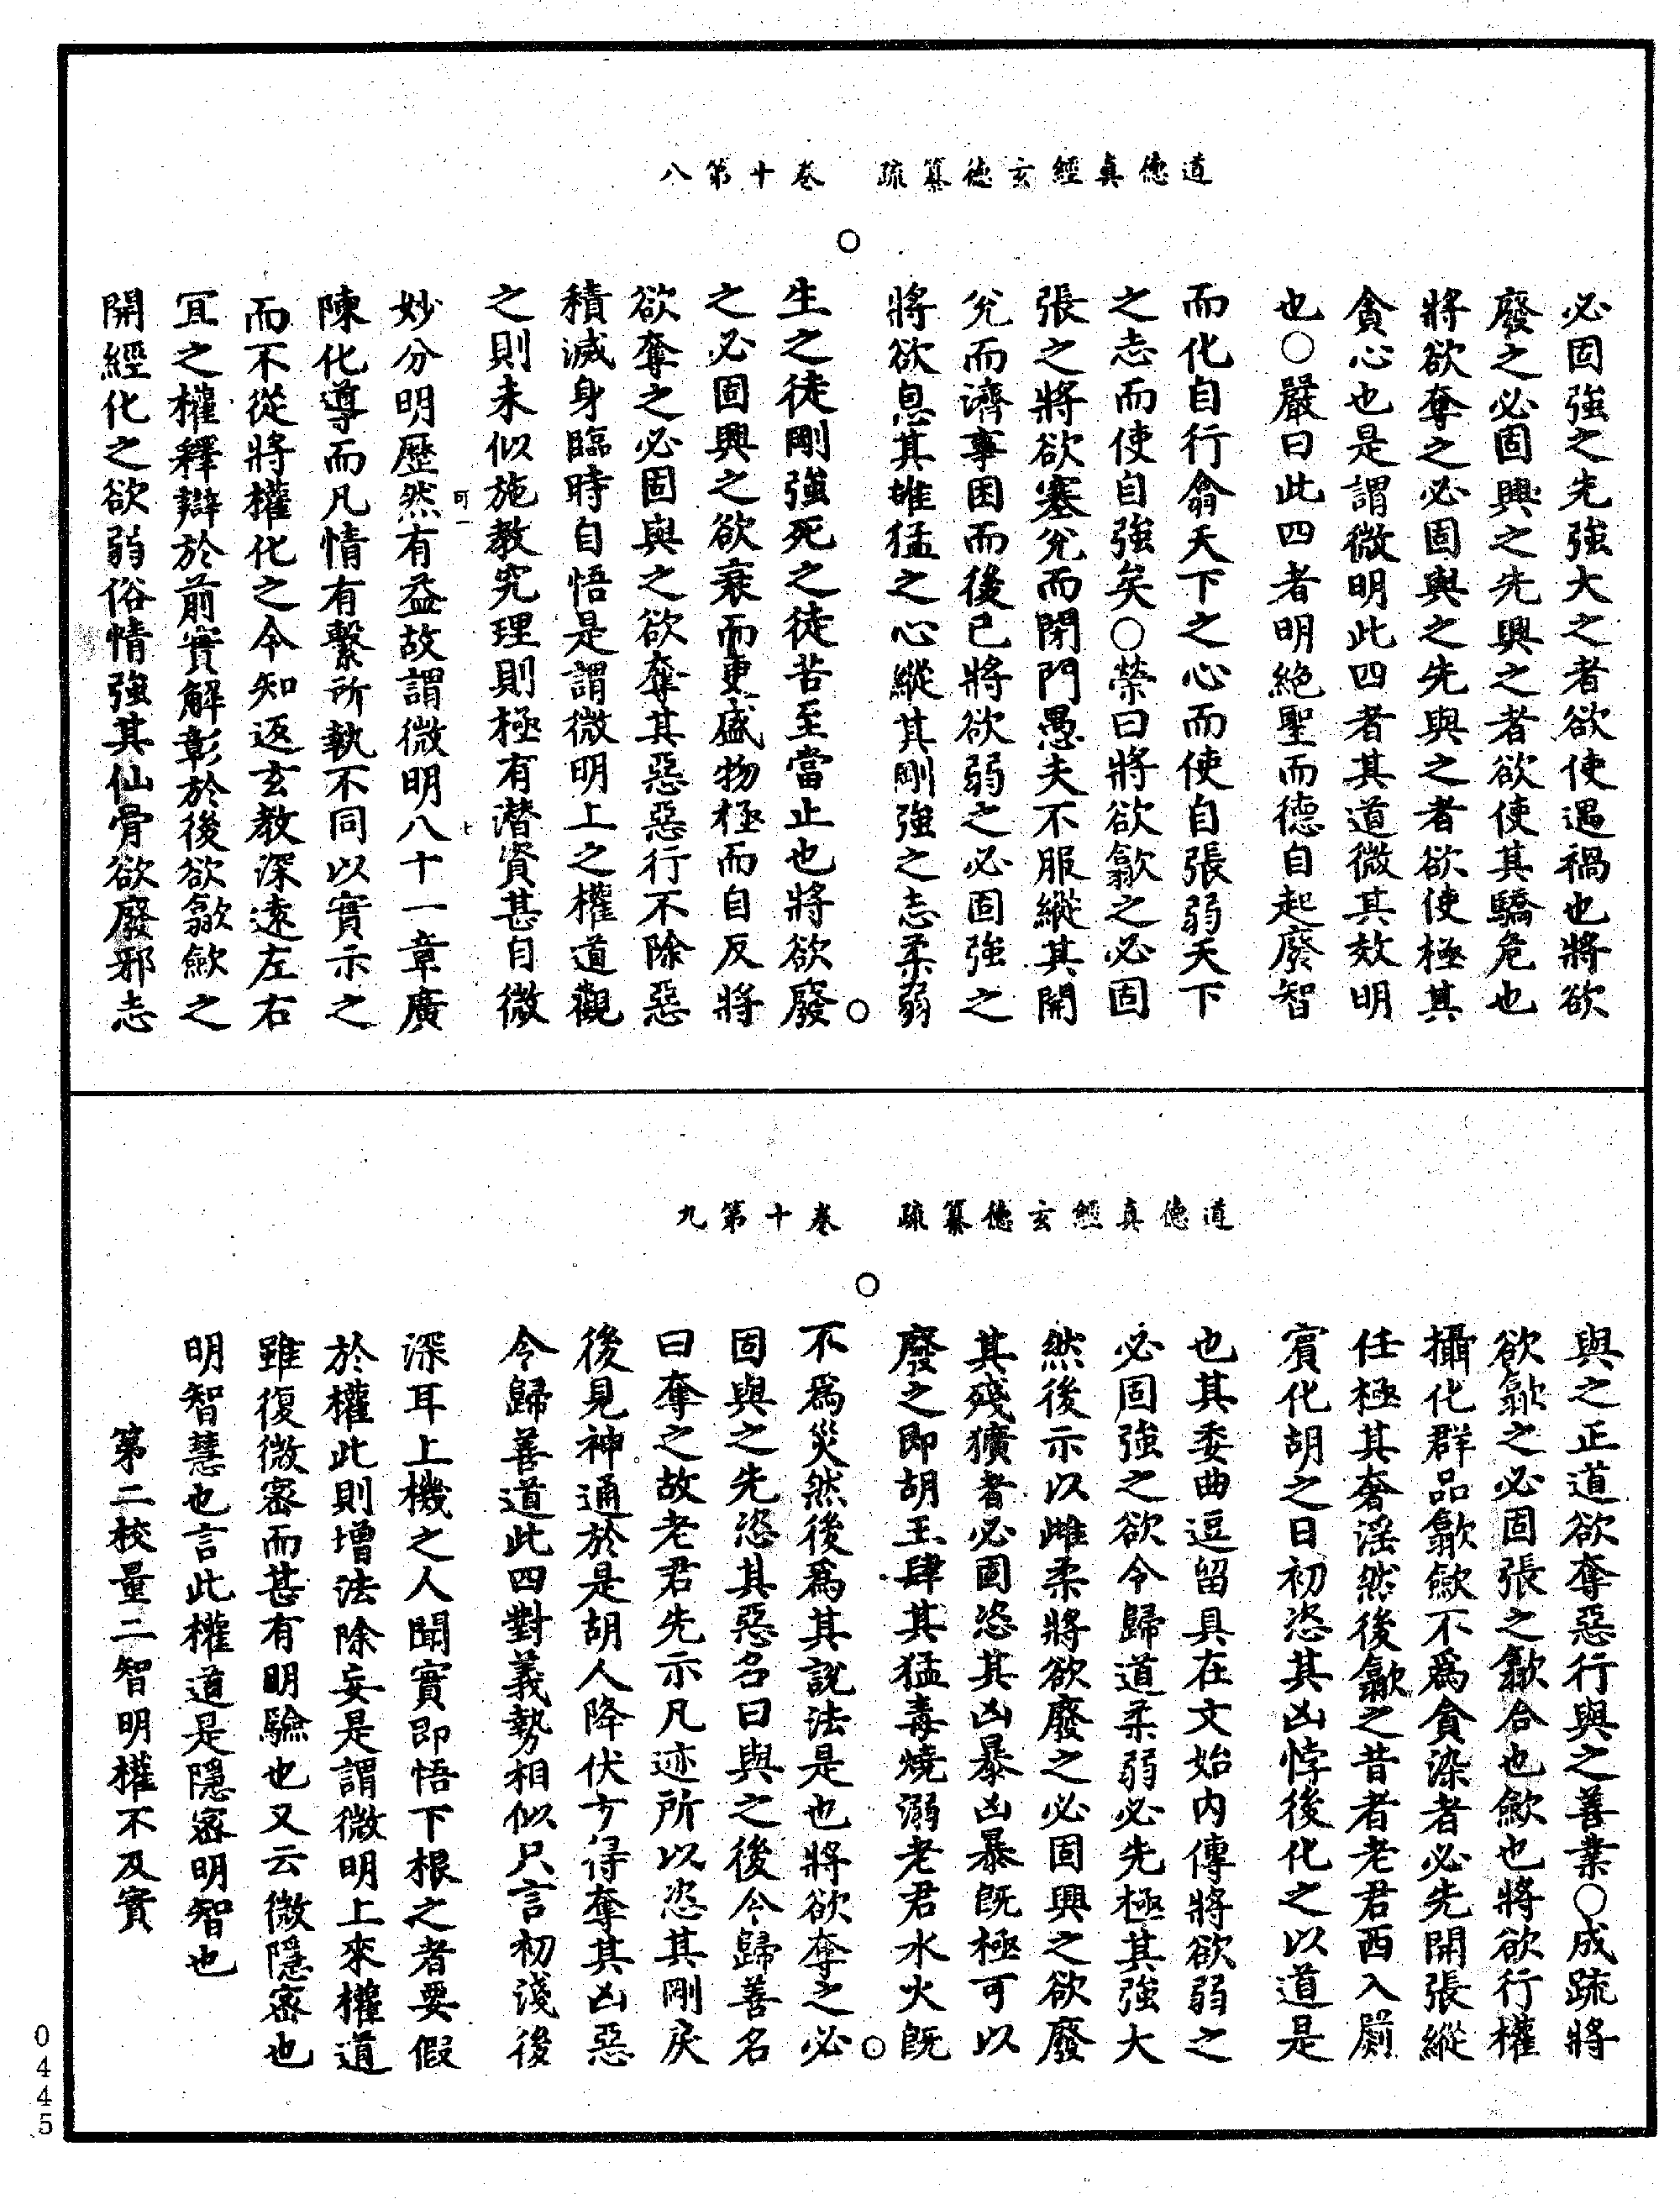 道德真經玄德纂疏　卷十第八
必固強之先強大之者欲使遇禍也將欲
廢之必固興之先興之者欲使其驕危也
將欲奪之必固與之先與之者欲使極其
貪心也是謂微明此四者其道微其效明
也○嚴曰此四者明絶聖而德自起廢智
而化自行翕天下之心而使自張弱天下
之志而使自強矣○榮曰將欲歙之必固
張之將欲塞兊而閉門愚夫不服縱其開
兊而濟事困而後已將欲弱之必固強之
將欲息其雄猛之心縱其剛強之志柔弱
生之徒剛強死之徒苦至當止也將欲廢
之必固興之欲衰而更盛物極而自反將
欲奪之必固與之欲奪其惡惡行不除惡
積滅身臨時自悟是謂微明上之權道觀
之則未似施教究理則極有潜資甚自微
妙分明歷然有益故謂微明八十一章廣
可一
七
陳化導而凡情有繫所執不同以實示之
而不從將權化之令知返玄教深遠左右
冝之權釋辯於前實解彰於後欲歙歛之
開經化之欲弱俗情強其仙骨欲廢邪志
道德真經玄德纂疏　卷十第九
與之正道欲奪惡行與之善業○成疏將
欲歙之必固張之歙合也歛也將欲行權
攝化群品歙歛不爲貪染者必先開張縱
任極其奢淫然後歙之昔者老君西入罽
賓化胡之日初恣其凶悖後化之以道是
也其委曲逗留具在文始内傳將欲弱之
必固強之欲令歸道柔弱必先極其強大
然後示以雌柔將欲廢之必固興之欲廢
其殘獷者必固恣其凶暴凶暴旣極可以
廢之即胡王肆其猛毒燒溺老君水火旣
不爲災然後爲其說法是也將欲奪之必
固與之先恣其惡名曰與之後令歸善名
曰奪之故老君先示凡迹所以恣其剛戾
後見神通於是胡人降伏方得奪其凶惡
令歸善道此四對義勢相似只言初淺後
深耳上機之人聞實即悟下根之者要假
於權此則增法除妄是謂微明上來權道
雖復微密而甚有明驗也又云微隱密也
明智慧也言此權道是隱密明智也
第二校量二智明權不及實
0445